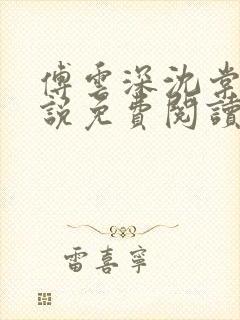 傅雲深沈棠
說免費閱讀
雷喜寧